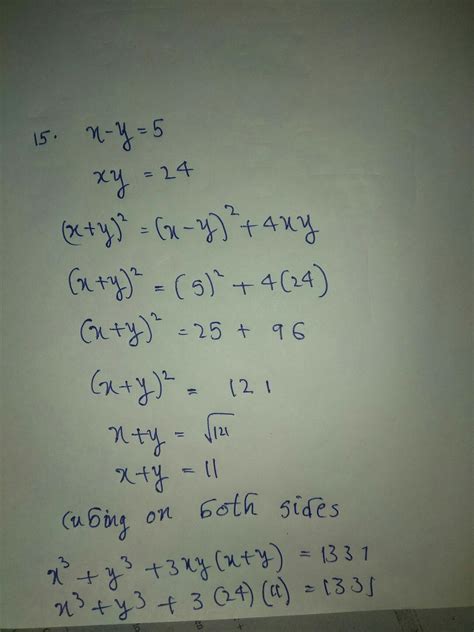 15. x-y=5
xy = 24
(x+y)² = (x-y)² + 4xy
(x+y)² = (5)² + 4(24)
(x+y)² = 25 + 96
(x+y)² = 121
x+y = √121
x+y = 11
Cubing on both sides
x³ + y³ + 3xy(x+y) = 1331
x³ + y³ + 3(24)(11) = 1331